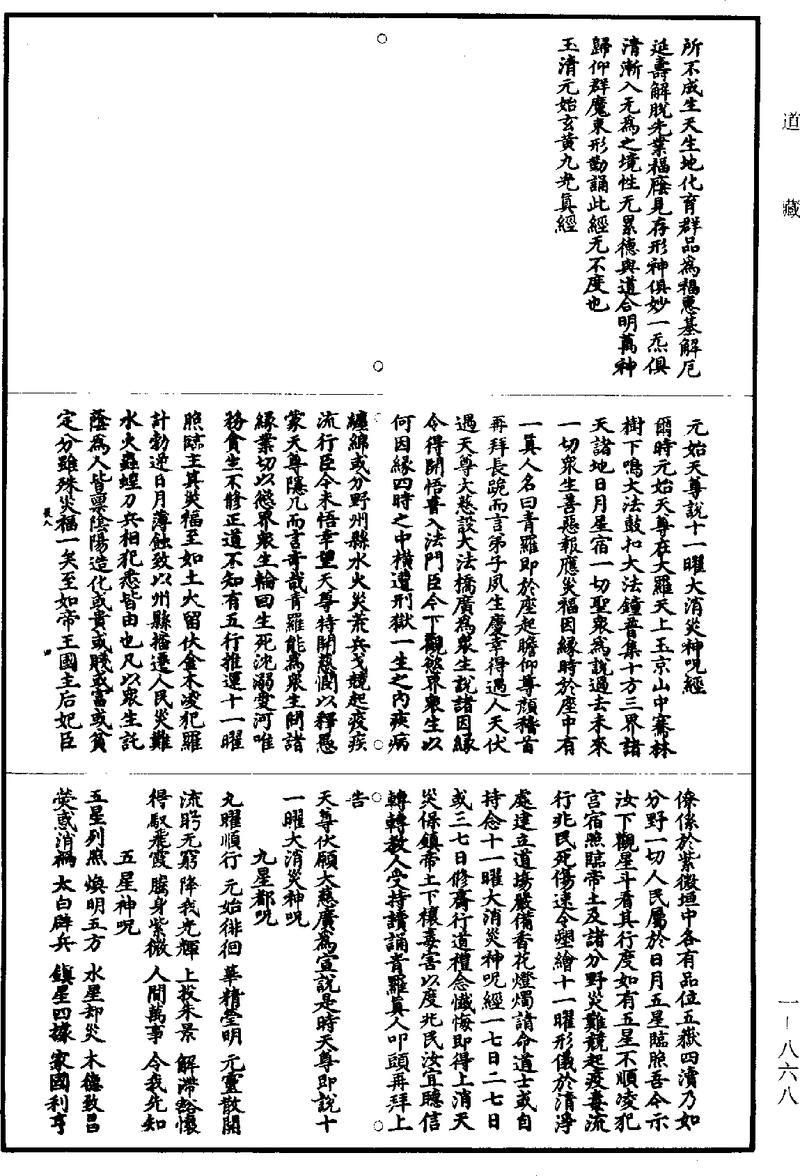 道藏
所不成生天生地化育群品為福惠基解厄
延壽解脫光業福廕見存形神俱妙一炁俱
清漸入无為之境性无累德與道合明萬神
歸仰群魔束形勤誦此經无不度也
玉清元始玄黃九光真經
元始天尊說十一曜大消災神呪經
爾時元始天尊在大羅天上玉京山中騫林
樹下鳴大法鼓扣大法鐘普集十方三界諸
天諸地日月星宿一切聖衆為說過去未來
一切衆生善惡報應災福因緣時於座中有
一真人名曰青羅即於座起瞻仰尊顏稽首
再拜長跪而言弟子夙生慶幸得遇人天伏
遇天尊大慈設大法橋廣為衆生說諸因緣
令得開悟普入法門臣今下觀慾界衆生以
何因緣四時之中橫遭刑獄一生之內疾病
纏綿或分野州縣水火災荒兵戈競起疫疾
流行臣今未悟幸望天尊特開慈憫以釋愚
蒙天尊隱几而言奇哉青羅能為衆生問諸
緣業切以慾界衆生輪回生死沈溺愛河唯
務貪生不修正道不知有五行推運十一曜
照臨主其災福至如土火留伏金木凌犯羅
計勃逆日月薄蝕致以州縣播遷人民災難
水火蟲蝗刀兵相犯悉皆由也凡以衆生託
蔭為人皆稟陰陽造化或貴或賤或富或貧
定分雖殊災福一矣至如帝王國主后妃臣
僚係於紫微垣中各有品位五嶽四瀆乃如
分野一切人民屬於日月五星臨照吾今示
汝下觀星斗看其行度如有五星不順凌犯
宮宿照臨帝土及諸分野災難競起疫毒流
行兆民死傷速令塑繪十一曜形儀於清淨
處建立道場嚴備香花燈燭請命道士或自
持念十一曜大消災神呪經一七日二七日
或三七日修齋行道禮念懺悔即得上消天
災保鎮帝土下禳毒害以度兆民汝宜聽信
轉轉教人受持讀誦青羅真人叩頭再拜上
告
天尊伏願大慈廣為宣說是時天尊即說十
一曜大消災神呪
九星都呪
九曜順行 元始徘徊 華精瑩明 元靈散開
流眄无窮 降我光輝 上投朱景 解滯豁懷
得馭飛霞 騰身紫微 人間萬事 令我先知
五星神呪
五星列照 煥明五方 水星却災 木德致昌
熒惑消禍 太白辟兵 鎮星四據 家國利亨
一—八六八